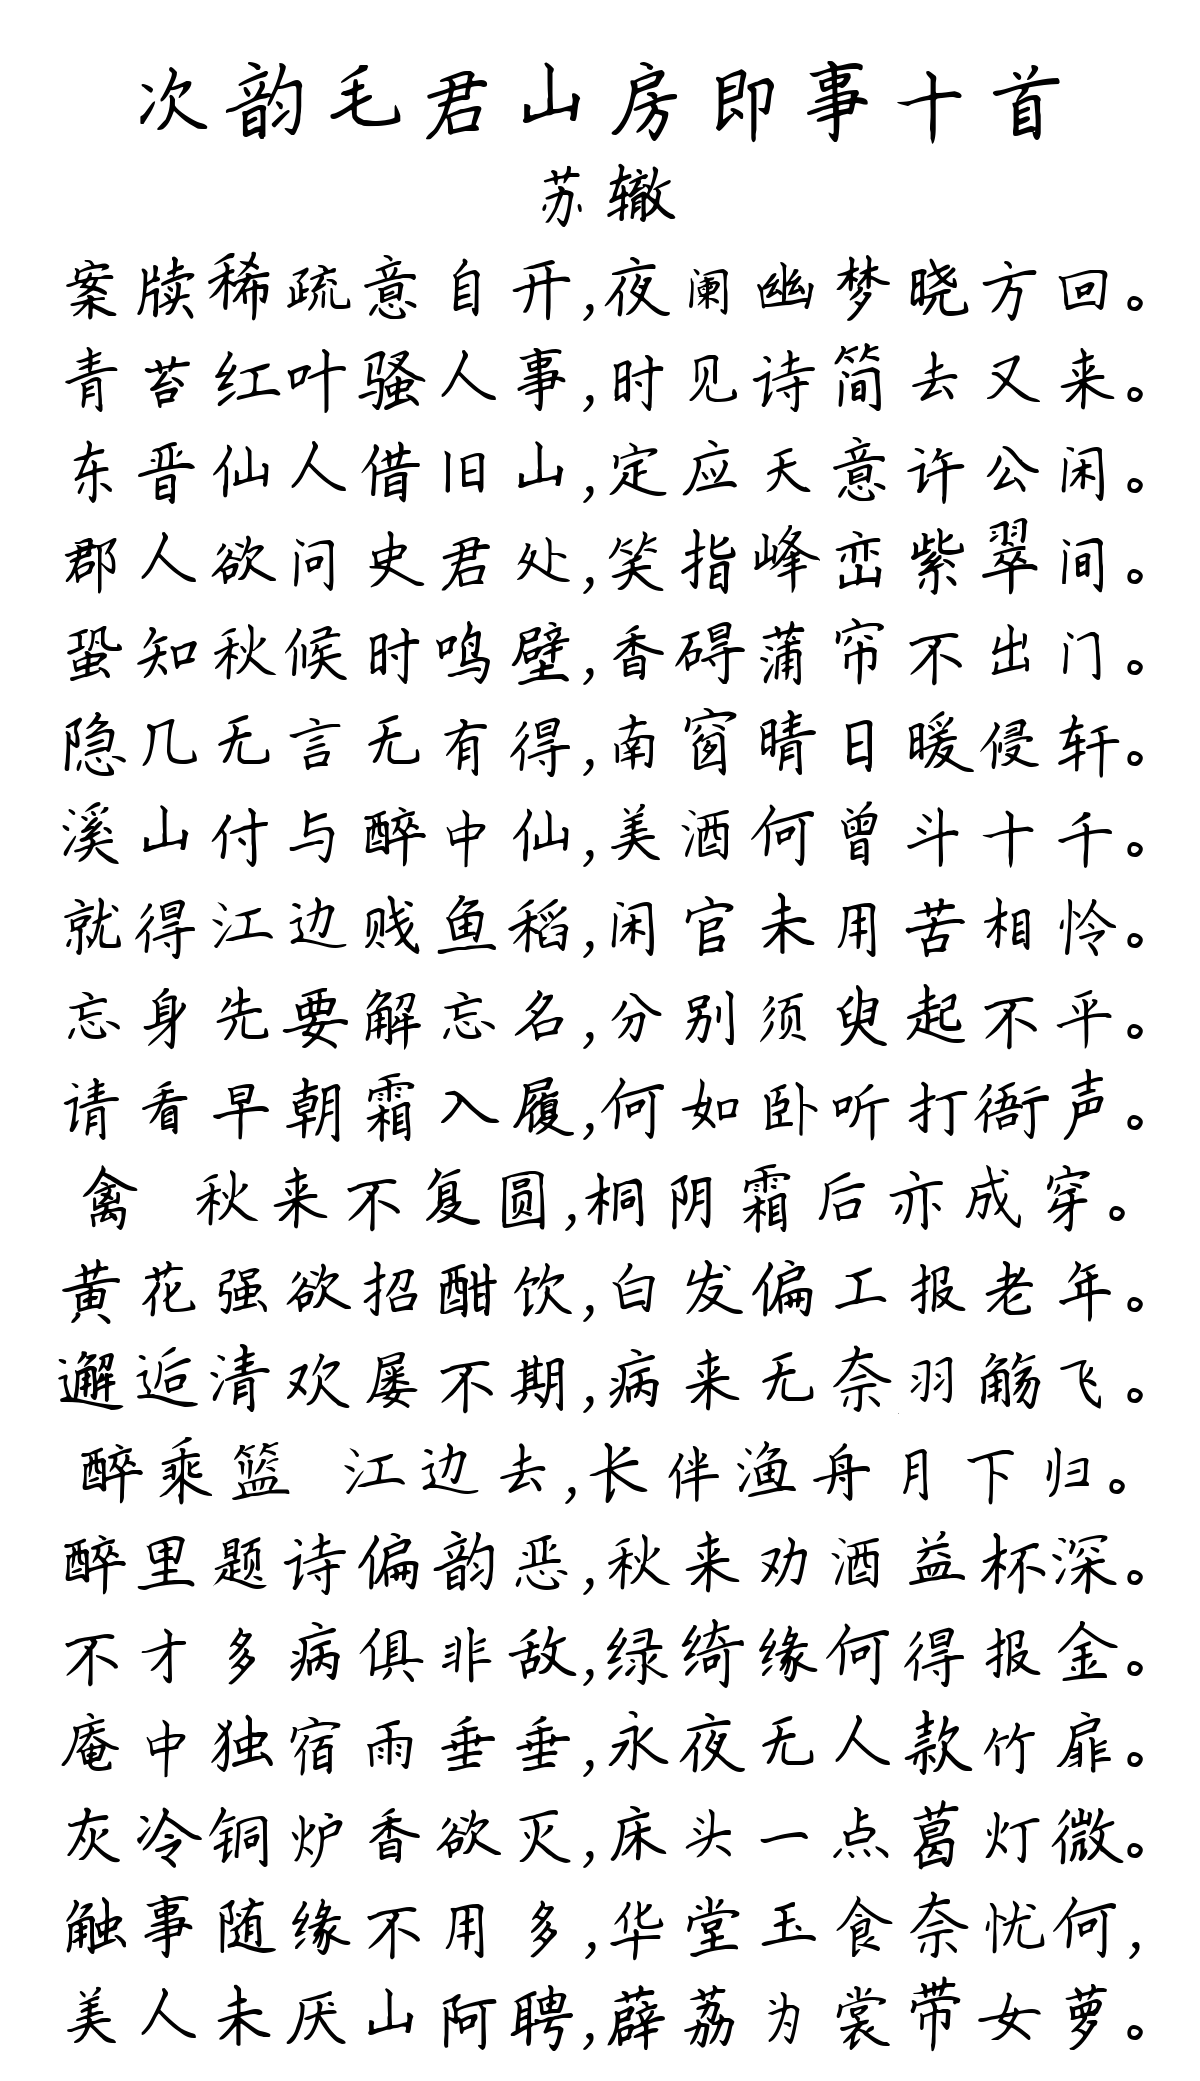 次韵毛君山房即事十首
苏辙
案牍稀疏意自开,夜阑幽梦晓方回。
青苔红叶骚人事,时见诗简去又来。
东晋仙人借旧山,定应天意许公闲。
郡人欲问史君处,笑指峰峦紫翠间。
蛩知秋候时鸣壁,香碍蒲帘不出门。
隐几无言无有得,南窗晴日暖侵轩。
溪山付与醉中仙,美酒何曾斗十千。
就得江边贱鱼稻,闲官未用苦相怜。
忘身先要解忘名,分别须臾起不平。
请看早朝霜入履,何如卧听打衙声。
禽 秋来不复圆,桐阴霜后亦成穿。
黄花强欲招酣饮,白发偏工报老年。
邂逅清欢屡不期,病来无奈羽觞飞。
醉乘篮 江边去,长伴渔舟月下归。
醉里题诗偏韵恶,秋来劝酒益杯深。
不才多病俱非敌,绿绮缘何得报金。
庵中独宿雨垂垂,永夜无人款竹扉。
灰冷铜炉香欲灭,床头一点葛灯微。
触事随缘不用多,华堂玉食奈忧何,
美人未厌山阿聘,薜荔为裳带女萝。